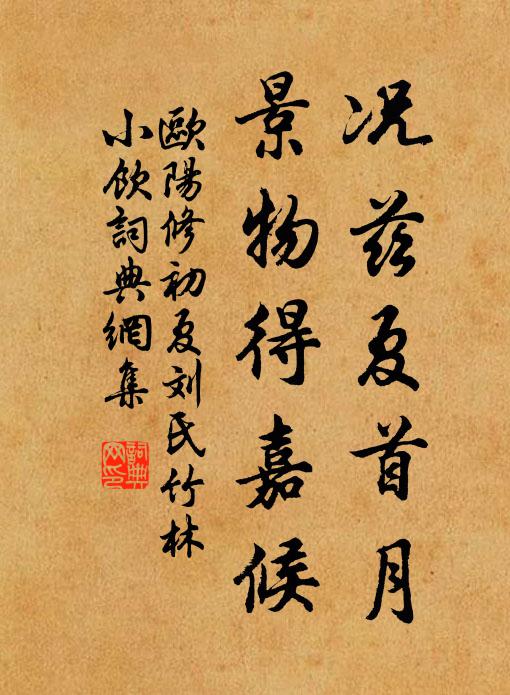 况茲夏首月
景物得嘉候
歐陽修初夏刘氏竹林
小飲詞典網集
詞典
网印